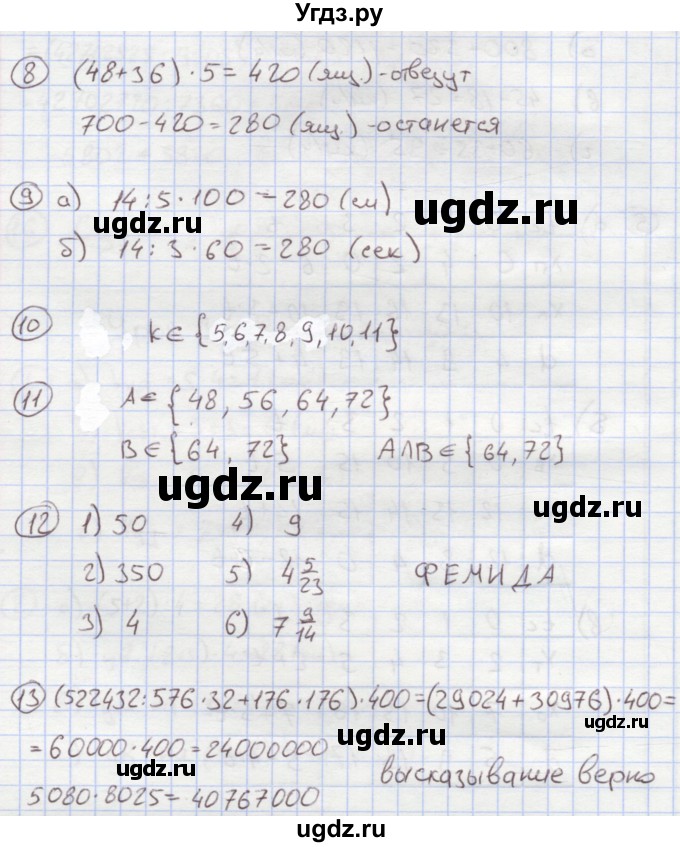 Угдз.ру
8 (48+36)·5=420(ящ.)-отвезут
700-420=280(ящ.)-останется
9 а) 14:5·100=280(см)
ugdz.ru
ugdz.ru
б) 14:3·60=280(сек)
10 k∈{5,6,7,8,9,10,11}
11 A∈{48,56,64,72}
B∈{64,72} A∩B∈{64,72}
ugdz.ru
ugdz.ru
12 1) 50 4) 9
2) 350 5) 4 5/23 ФЕМИДА
3) 4 6) 7 9/14
13 (522432:576·32+176·176)·400=(29024+30976)·400=
ugdz.ru
=60000·400=24000000
ugdz.ru
ugdz.ru
высказывание верно
5080·8025=40767000
ugdz.ru